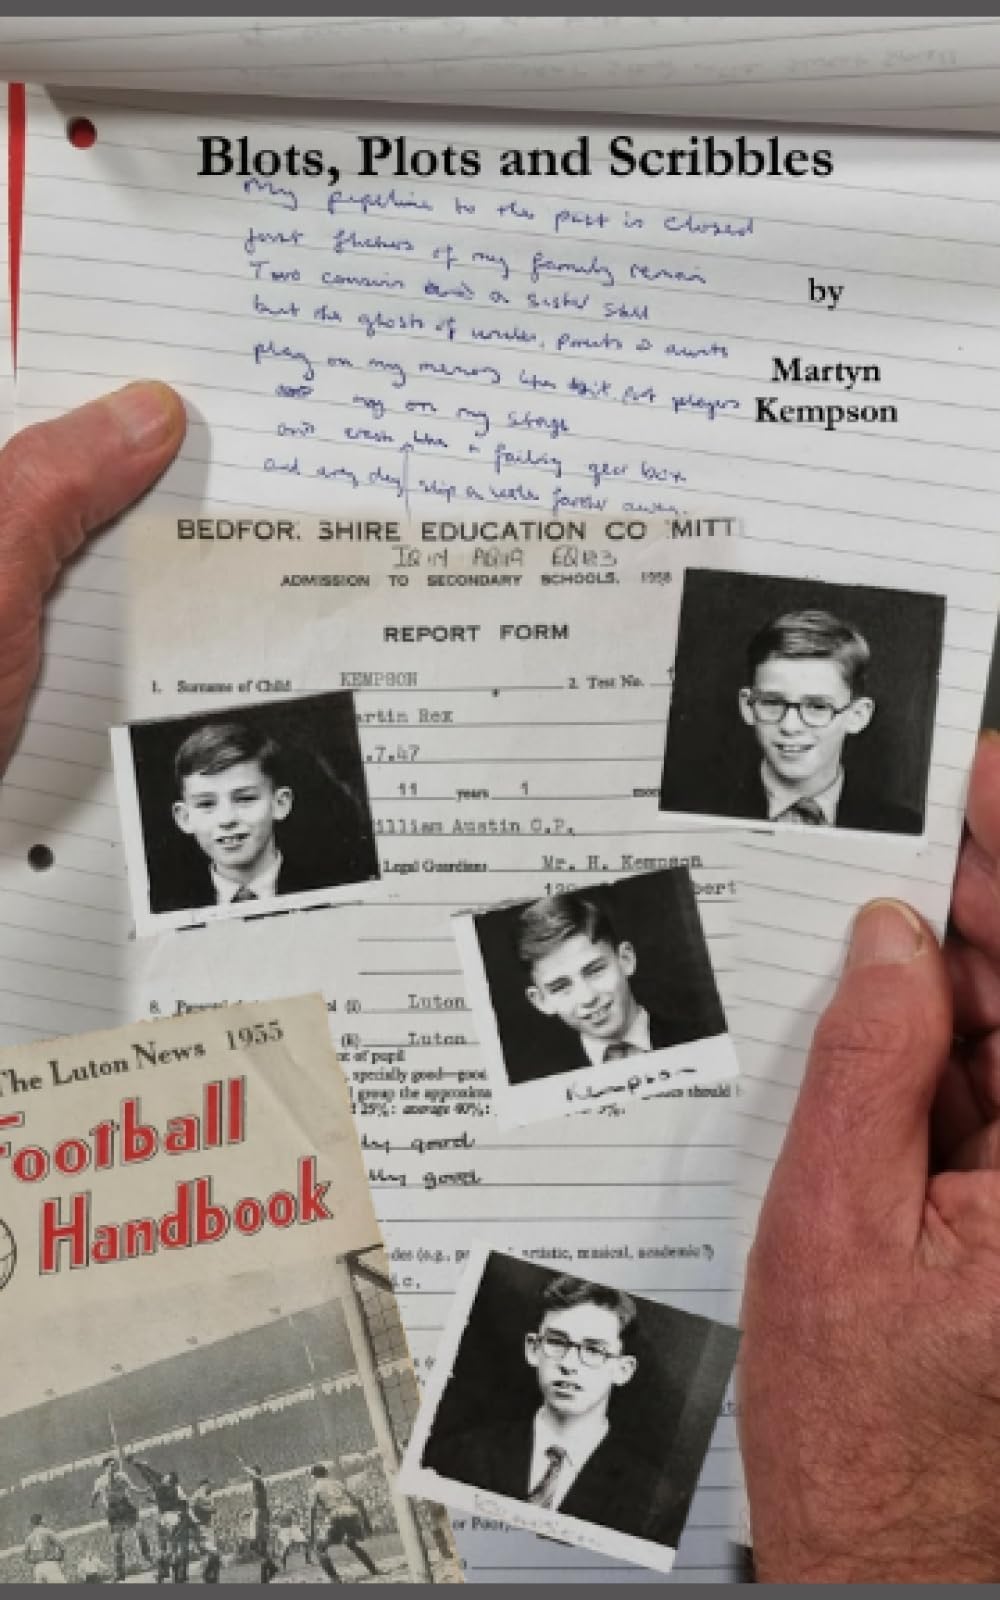 Blots, Plots and Scribbles
by
Martyn
Kempson
My pipeline to the past is closed
just flickers of my family remain
Two cousins and a sister still
but the ghosts of uncles, parents & aunts
play on my memory like bit part players
on my stage
and crash like a failing gear box
and every day slip a little further away.
BEDFOR. SHIRE EDUCATION CO MITT
ADMISSION TO SECONDARY SCHOOLS. 1958
REPORT FORM
1. Surname of Child KEMPSON 2. Test No.
artin Rex
.7.47
11 years 1 mon
illiam Austin C.P.
Legal Guardians Mr. H. Kempson
bert
8. (i) Luton
(ii) Luton
of pupil
specially good—good
group the approxima
25%: average 40%:
Kempson
should
good
good
artistic, musical, academic?)
ic.
or Poor,
The Luton News 1955
Football
Handbook